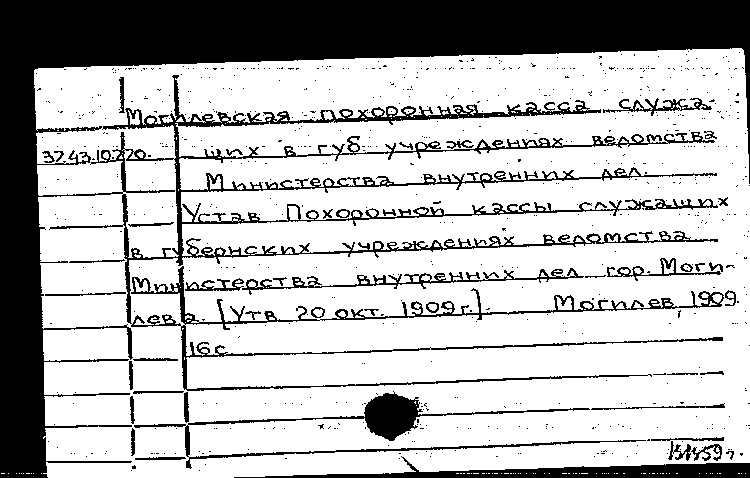 Могилевская похоронная касса служа-
37.43.10.220. щих в губ. учреждениях ведомства
Министерства внутренних дел.
Устав Похоронной кассы служащих
в губернских учреждениях ведомства
Министерства внутренних дел гор. Моги-
лева. [Утв. 20 окт. 1909 г.]. Могилев, 1909.
16 с.